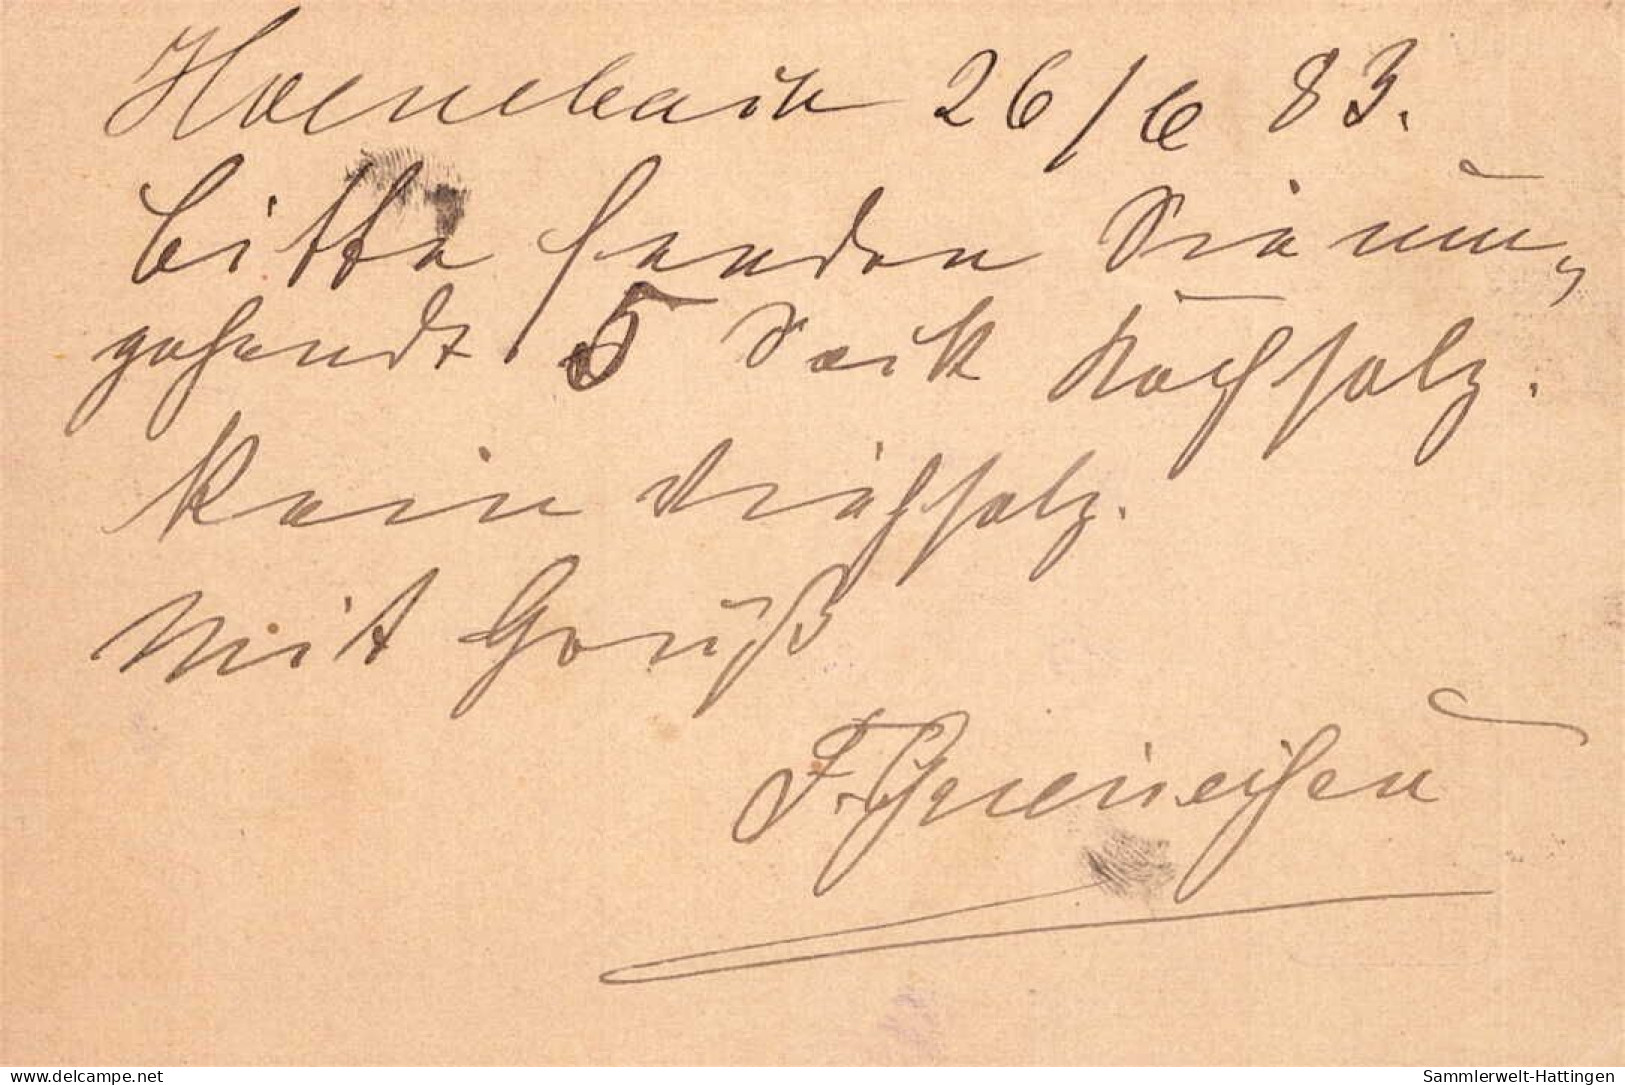 Hornbach 26/6 83.
Bitte senden Sie um-
gehendst 5 Sack Kochsalz.
Kein Viehsalz.
Mit Gruß
F.
www.delcampe.net
Sammlerwelt-Hattingen